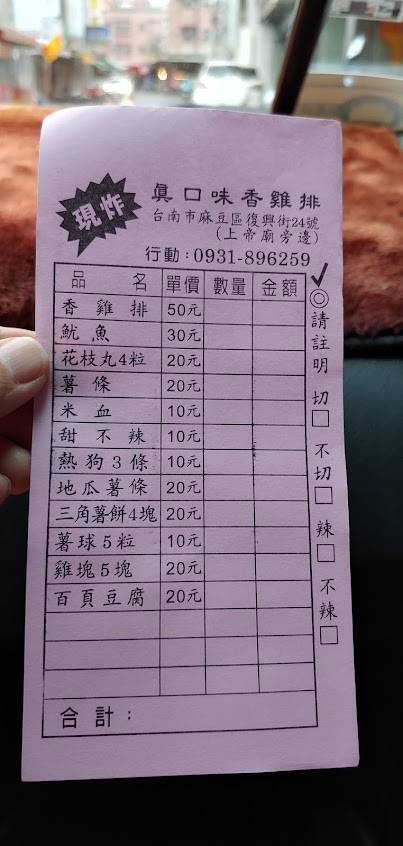 現炸
真口味香雞排
台南市麻豆區復興街24號
(上帝廟旁邊)
行動：0931-896259
品名 單價 數量 金額
香雞排 50元
魷魚 30元
花枝丸4粒 20元
薯條 20元
米血 10元
甜不辣 10元
熱狗3條 10元
地瓜薯條 20元
三角薯餅4塊 20元
薯球5粒 10元
雞塊5塊 20元
百頁豆腐 20元
合計：
✓
◎請註明 切□ 不切□ 辣□ 不辣□